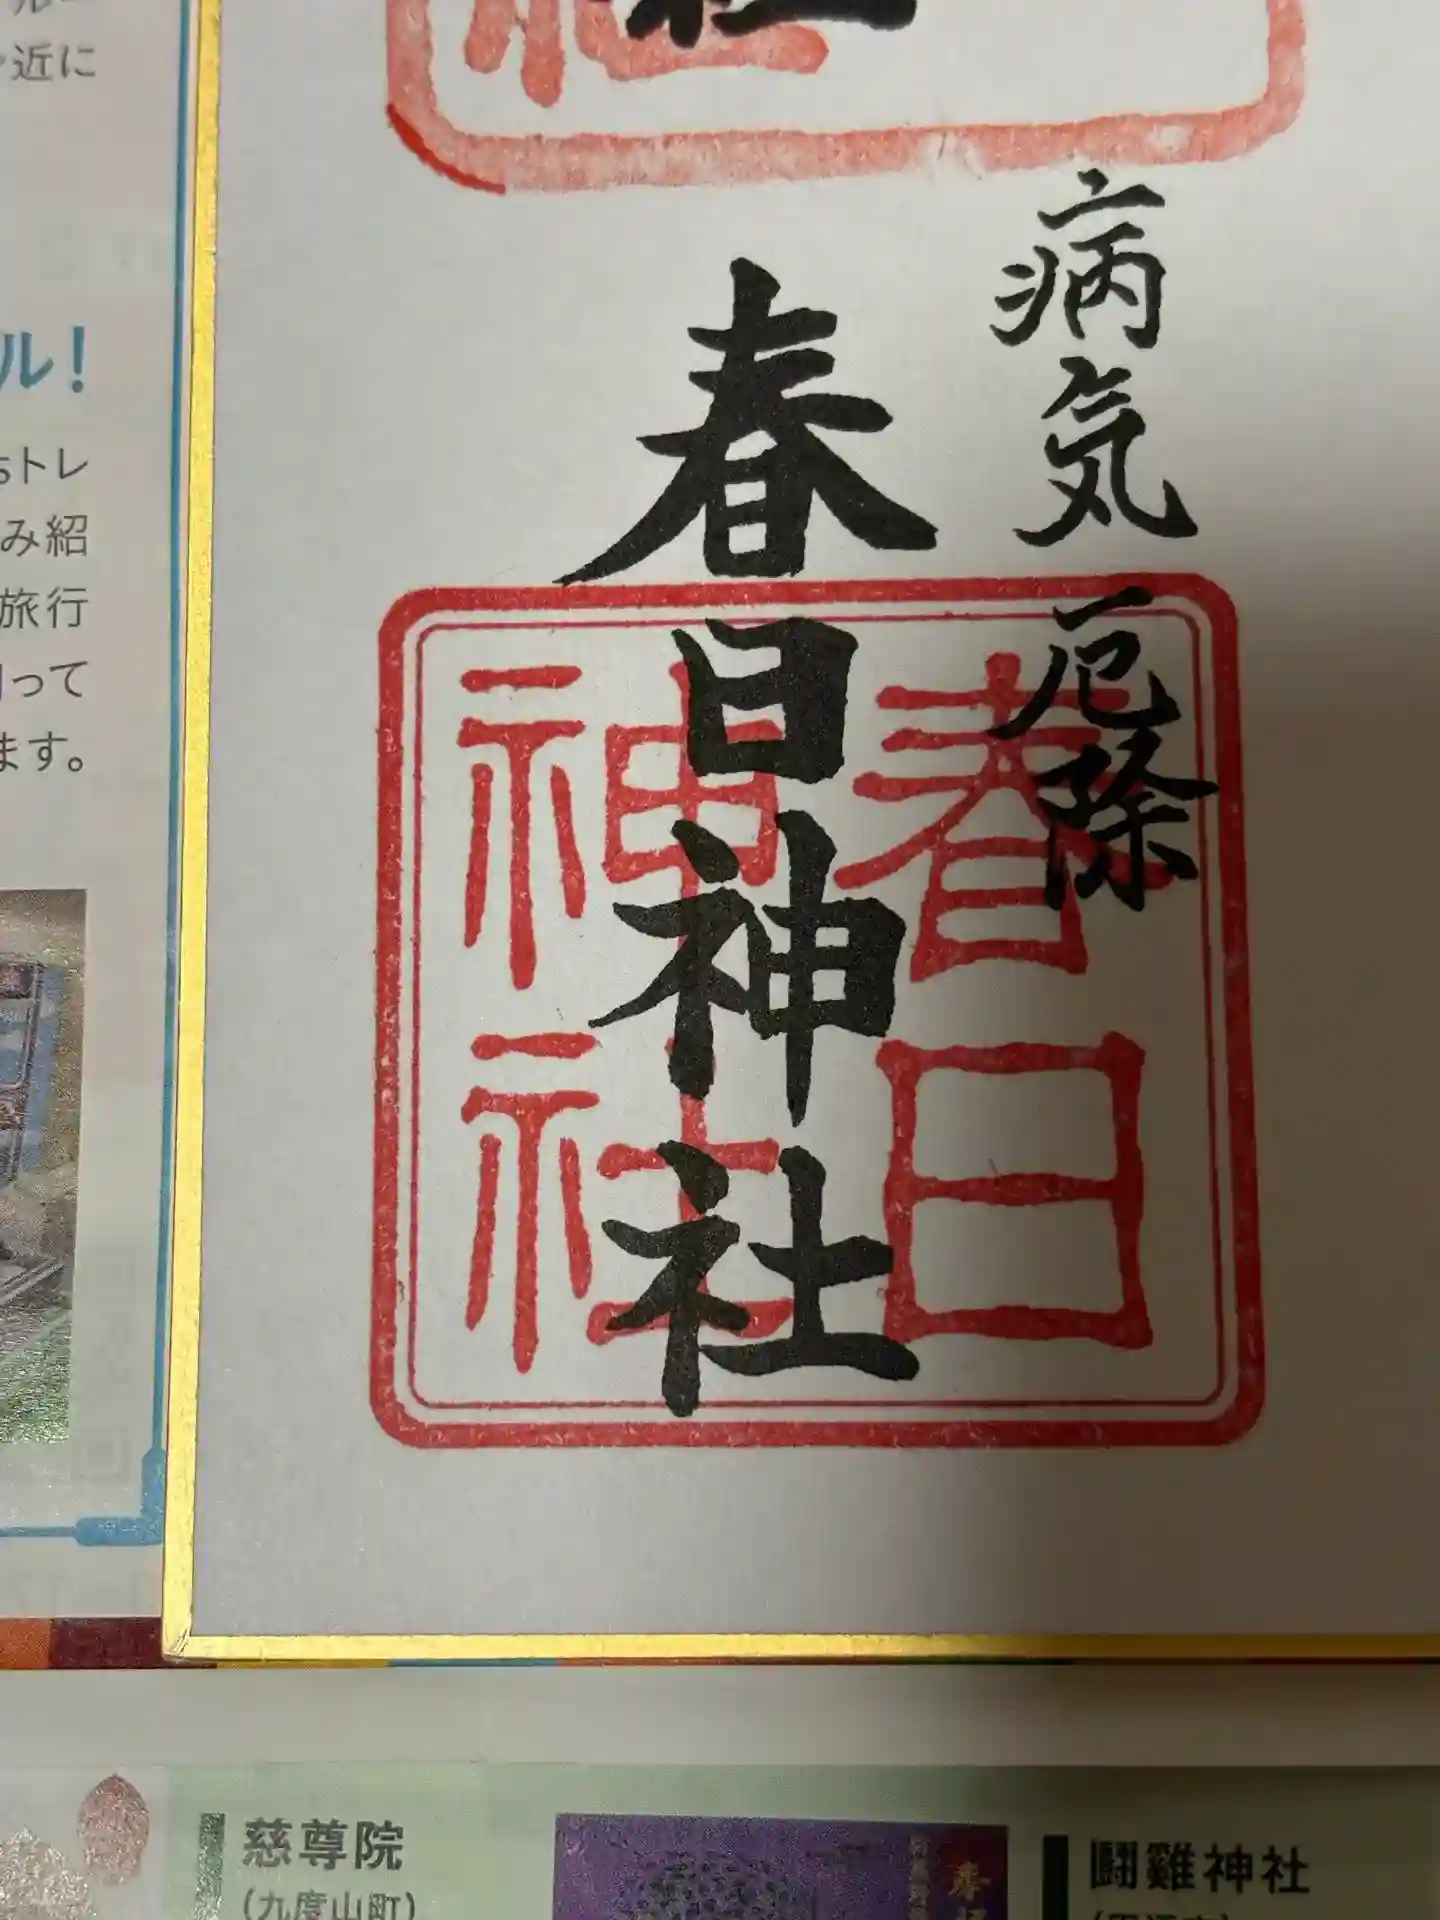 近に
ル!
トレ
み紹
旅行
って
ます。
社
病気 厄除
春日神社
春日
神社
慈尊院
(九度山町)
闘雞神社
奉